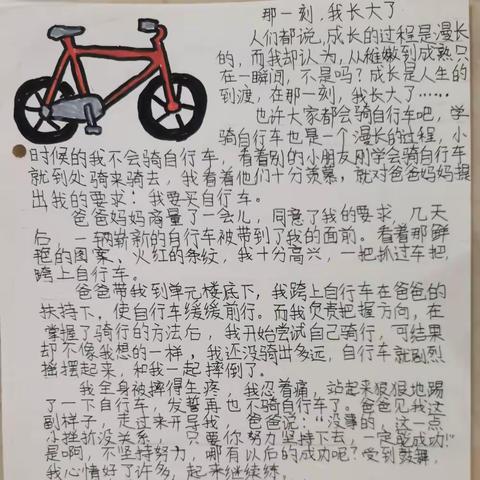 那一刻,我长大了
人们都说,成长的过程是漫长
的,而我却认为,从稚嫩到成熟只
在一瞬间,不是吗?成长是人生的
到渡,在那一刻,我长大了……
也许大家都会骑自行车吧,学
骑自行车也是一个漫长的过程,小
时候的我不会骑自行车,看着别的小朋友刚学会骑自行车
就到处骑来骑去,我看着他们十分羡慕,就对爸爸妈妈提
出我的要求:我要买自行车。
爸爸妈妈商量了一会儿,同意了我的要求,几天
后,一辆崭新的自行车被带到了我的面前。看着那鲜
艳的图案、火红的条纹,我十分高兴,一把抓过车把,
跨上自行车。
爸爸带我到单元楼底下,我跨上自行车在爸爸的
扶持下,使自行车缓缓前行。而我负责把握方向,在
掌握了骑行的方法后,我开始尝试自己骑行,可结果
却不像我想的一样,我还没骑出多远,自行车就剧烈
摇摆起来,和我一起摔倒了。
我全身被摔得生疼,我忍着痛,站起来狠狠地踢
了一下自行车,发誓再也不骑自行车了。爸爸见我这
副样子,走过来开导我,爸爸说:“没事的,这一点
小挫折没关系,只要你努力坚持下去,一定能成功!”
是啊,不坚持努力,哪有以后的成功呢?受到鼓舞,
我心情好了许多,起来继续练。